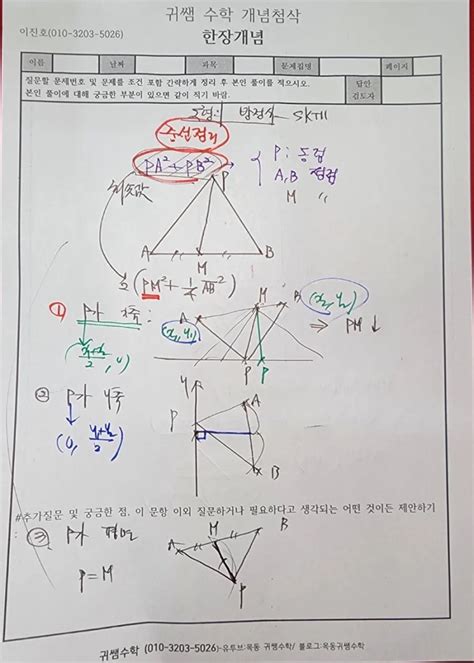 귀쌤 수학 개념첨삭
이진호(010-3203-5026)
한장개념
이름 날짜 과목 문제집명 페이지
질문할 문제번호 및 문제를 조건 포함 간략하게 정리 후 본인 풀이를 적으시오.
본인 풀이에 대해 궁금한 부분이 있으면 같이 적기 바람.
답안
검토자
방정식 SKTII
중선정리
PA²+PB² →
P : 동점
A, B 정점
M 〃
최솟값
P
A M B
2(PM²+¼AB²)
① P가 x축 :
(x₁+x₂/2, 0)
A (x₁, y₁) M B (x₂, y₂)
⇒ PM ↓
P P
② P가 y축
(0, y₁+y₂/2)
y
P A
B
#추가질문 및 궁금한 점, 이 문항 이외 질문하거나 필요하다고 생각되는 어떤 것이든 제안하기
:
③ P가 평면
P=M
A M B
P
귀쌤수학 (010-3203-5026)-유투브:목동 귀쌤수학/ 블로그:목동귀쌤수학